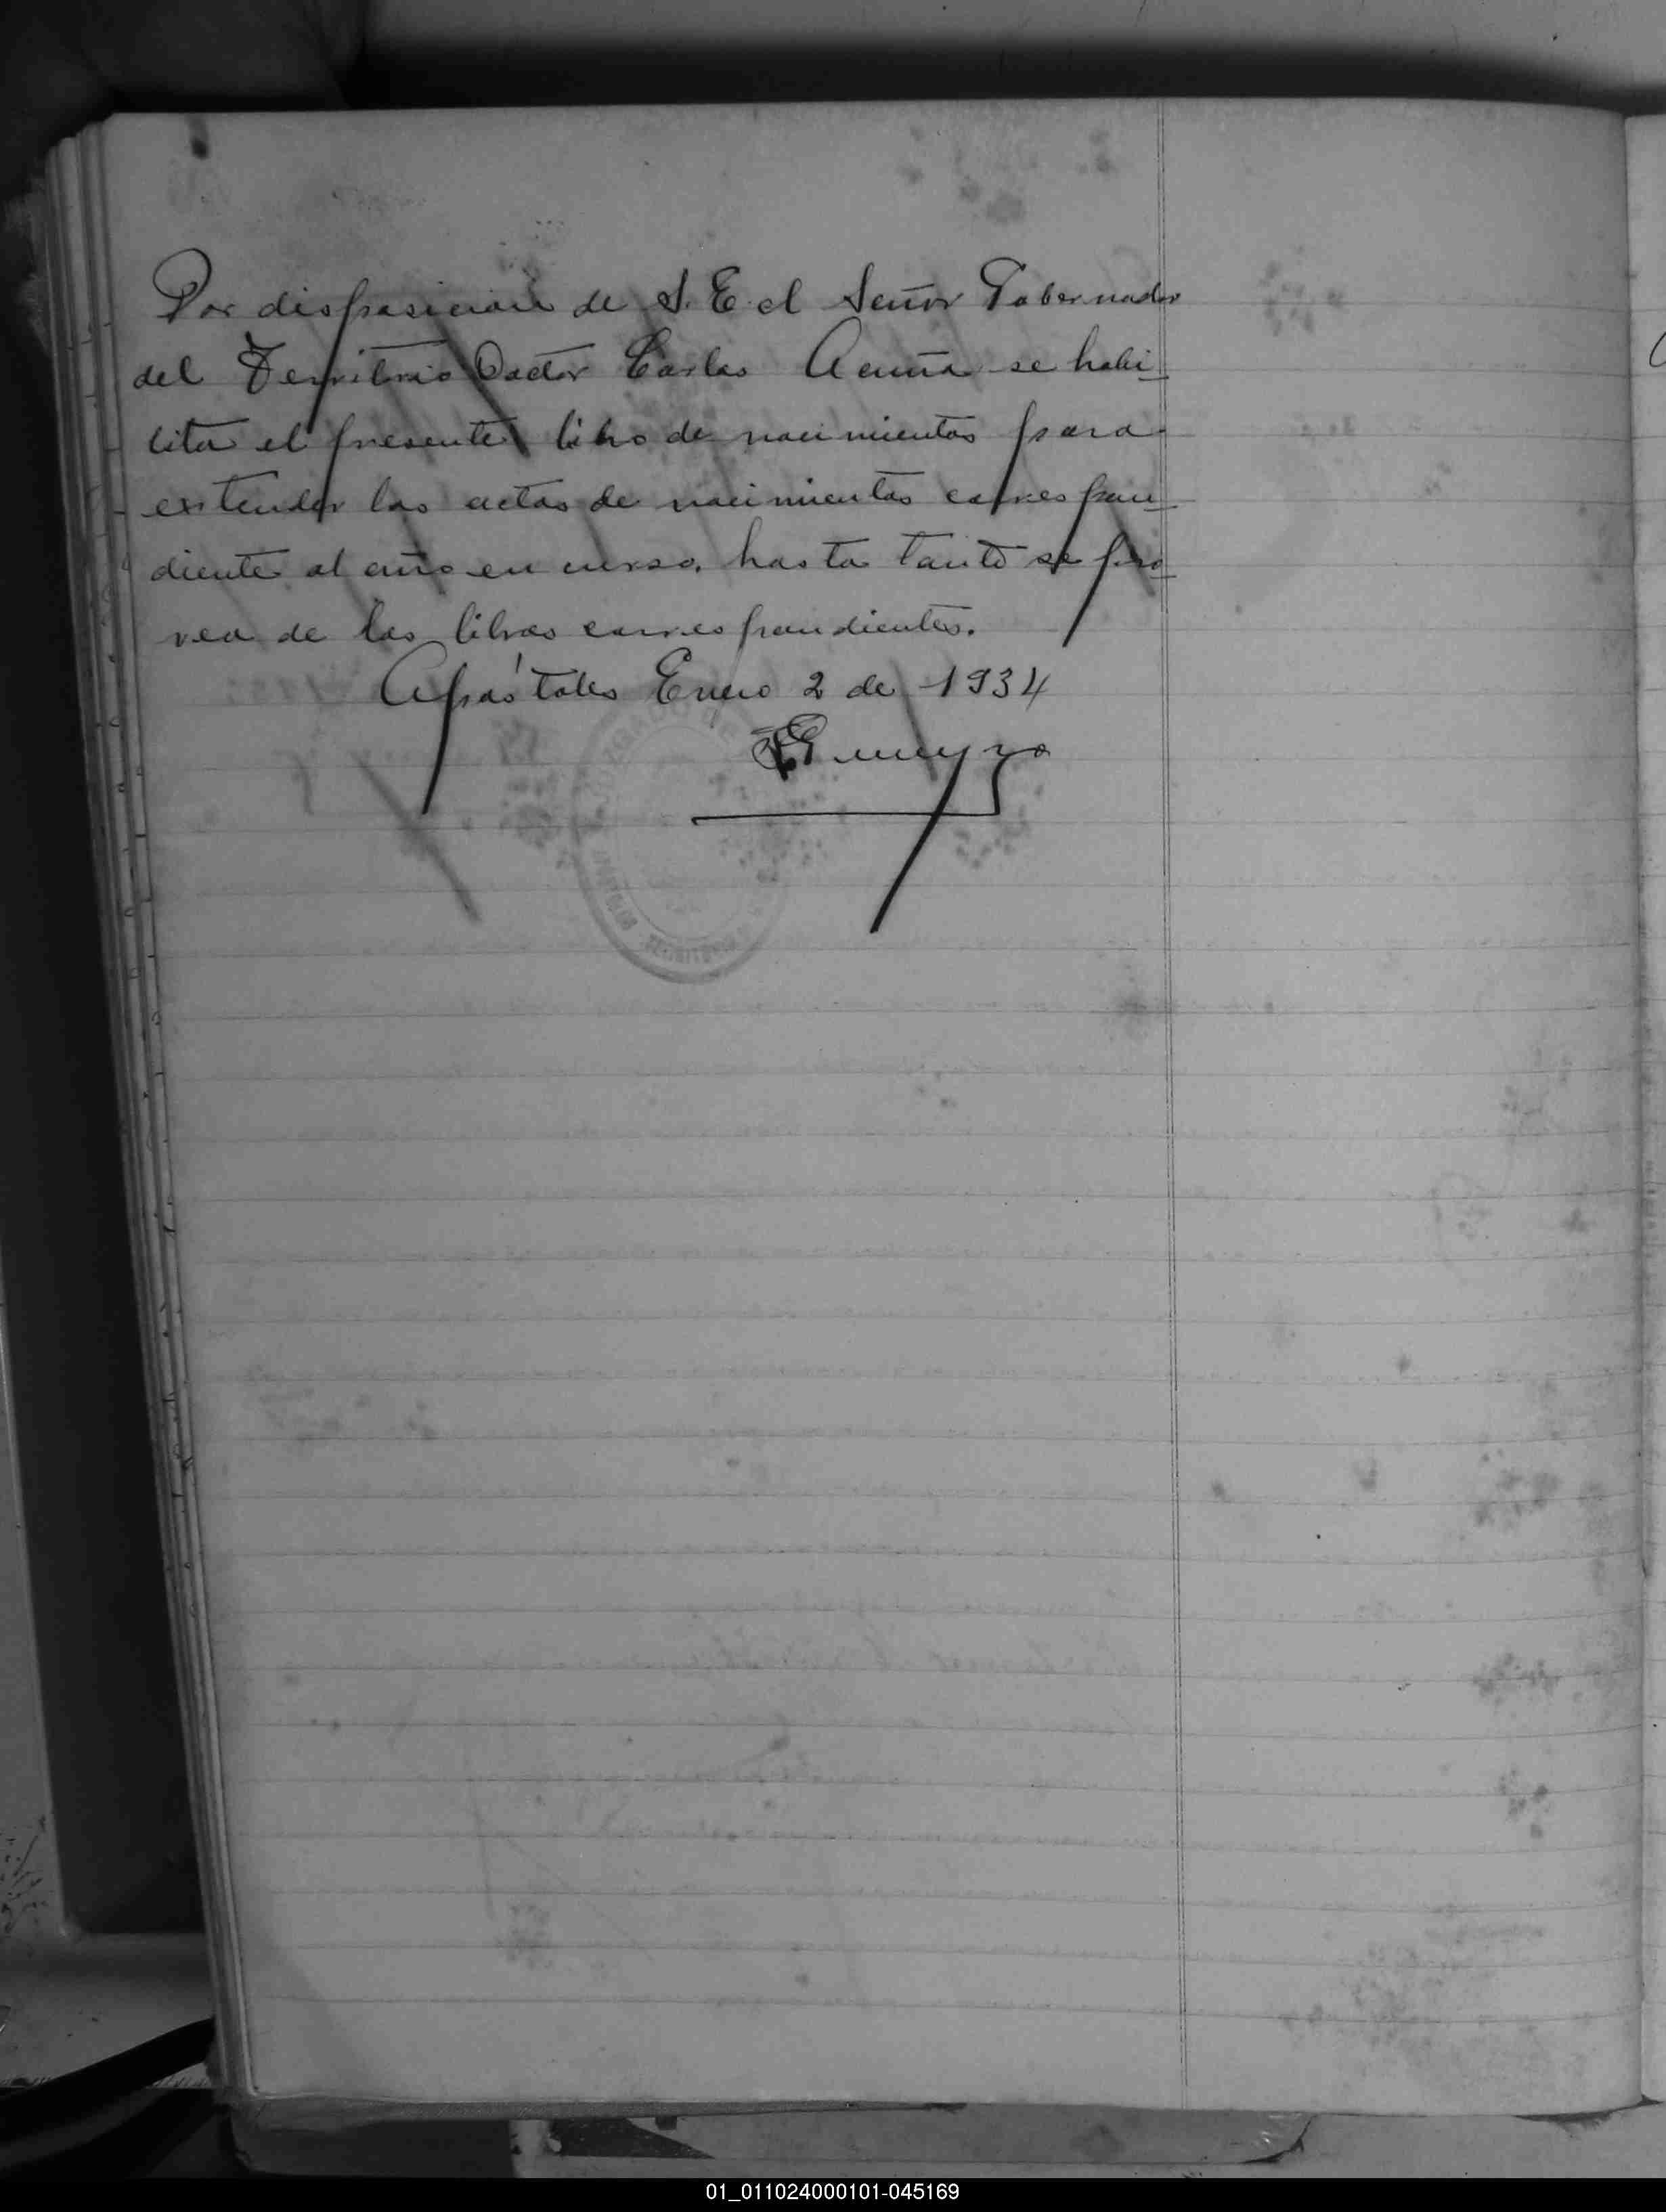 Por disposicion de S. E. el Señor Gobernador
del Territorio Doctor Carlos Acuña se habi-
lita el presente libro de nacimientos para
extender las actas de nacimientos correspon-
diente al año en curso, hasta tanto se pro-
vea de los libros correspondientes.
Apóstoles Enero 2 de 1934
JUZGADO DE
01_011024000101-045169